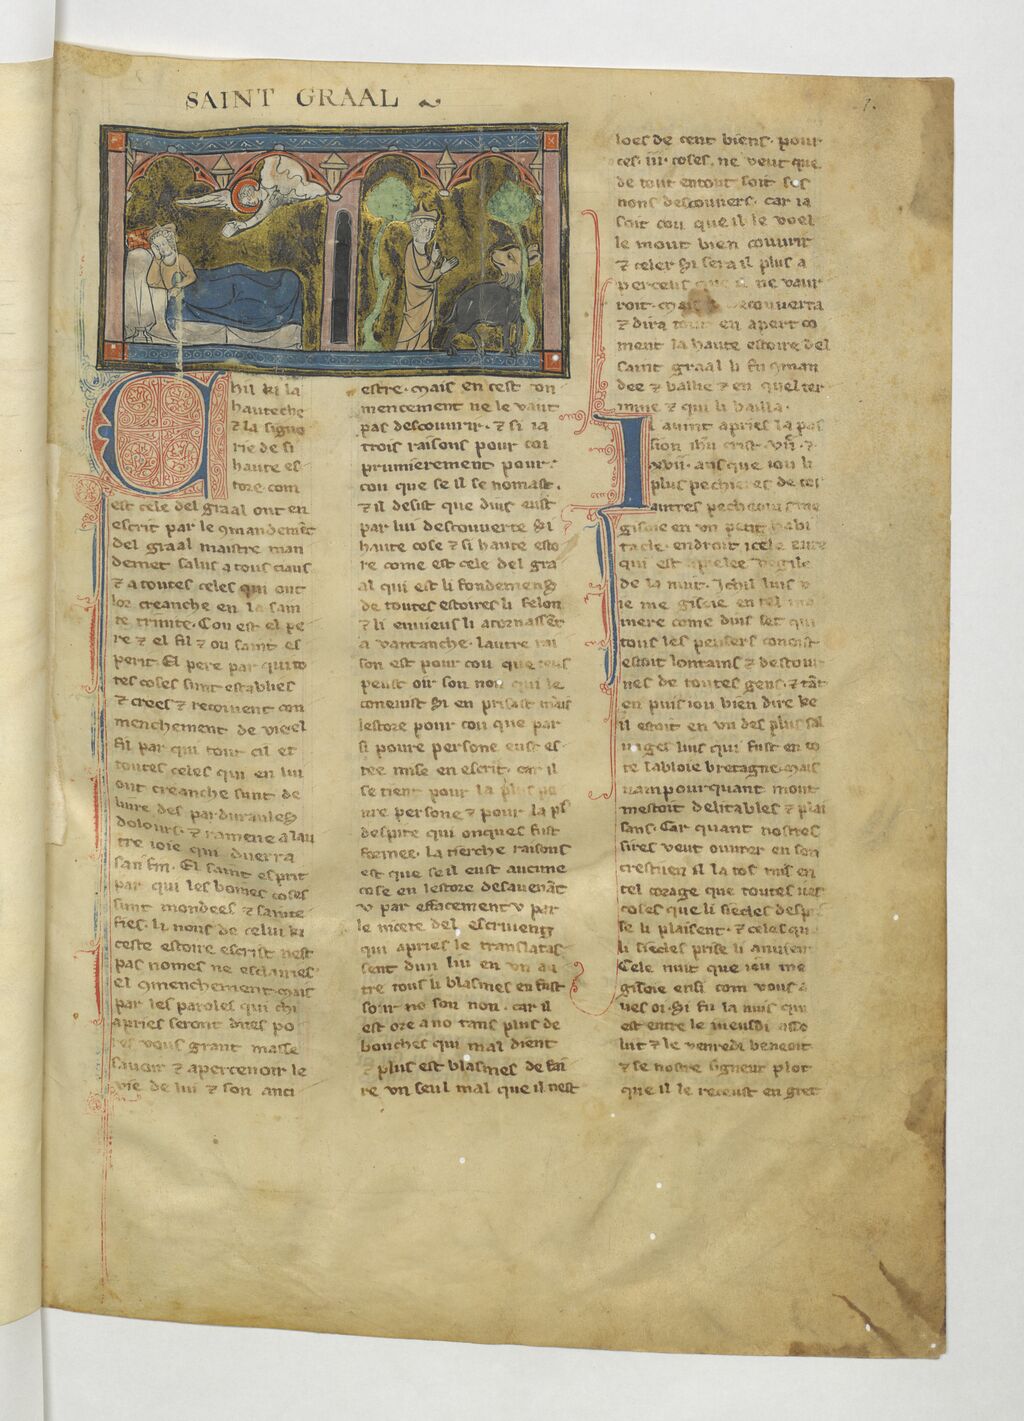 SAINT GRAAL
1.
Chil ki la
hauteche
⁊ la signo
rie de si
haute es
tore com
est cele del graal ont en
escrit par le ꝯmandemēt
del graal maistre man
demet salus a tous ciaus
⁊ a toutes celes qui ont
lor creanche en la sain
te trinite. Cou est el pe
re ⁊ el fil ⁊ ou saint es
perit. El pere par qui to
tes coses sunt establies
⁊ crees ⁊ recoiuent con
menchement de vie el
fil par qui tout cil et
toutes celes qui en lui
ont creanche sunt de
liure des pardurauleS
dolours. ⁊ ramene a lau
tre ioie qui duerra
sans fin. El saint esprit
par qui les boines coses
sunt mondees ⁊ sainte
fies. li nons de celui ki
ceste estoire escrist nest
pas nomes ne esclairies
el ꝯmenchement. mais
par les paroles qui chi
apries seront dites po
res vous grant masse
sauoir ⁊ apercenoir le
vie de lui ⁊ son anci
estre. mais en cest con
mencement ne le vaut
pas descouurir. ⁊ si i a
trois raisons pour coi
prumierement pour.
cou que se il se nomast.
⁊ il desist que dius eust
par lui descouuerte si
haute cose ⁊ si haute esto
re come est cele del gra
al qui est li fondemens
de toutes estoires li felon
⁊ li enuieus li atornassēt
a vantanche. lautre rai
son est pour cou que teus
peust oir son non qui le
coneiust si en prisast mais
lestore pour cou que par
si poure persone eust es
tee mise en escrit. car il
se tient pour la plus po
ure persone ⁊ pour la pl'
despite qui onques fust
formee. La tierche raisons
est que se il eust aucune
cose en lestore desauenāt
v par effacement v par
le uicere del escriueng
qui apries le translatas
sent dun liu en vn au
tre tous li blasmes en fust
seur no son non. car il
est ore a no tans plus de
bouches qui mal dient
⁊ plus est blasmes de fai
re vn seul mal que il nest
loes de cent biens. pour
ces .iii. coses. ne veut que
de tout en tout soit ses
nons descouuers. car ia
soit cou que il le voel
le mout bien couurir
⁊ celer si sera il plus a
perceus que il ne vaur
roit. mais descouuerta
⁊ dira tout en apert co
ment la haute estoire del
saint graal li fu ꝯman
dee ⁊ baillie ⁊ en quel ter
mine ⁊ qui li bailla.
Il auint apries la pas
sion ihū crist .vii. ⁊
.xvii. ans que iou li
plus pechieres de tos
autres pecheours me
gisoie en vn petit habi
tacle. endroit icele eure
qui est apelee vegile
de la nuit. Ichil lius v
ie me gisoie en tel ma
niere come dius set qui
tous les pensers conoist
estoit lontains ⁊ destour
nes de toutes gens. ⁊ tāt
en puis iou bien dire ke
il estoit en vn des plus sal
uages lius qui fust en to
te la bloie bretagne. mais
nampourquant mout
mestoit delitables ⁊ plai
sans. Car quant nostres
sires veut ouurer en son
crestien il la tos mis en
tel corage que toutes les
coses que li siecles desp
se li plaisent. ⁊ celes qu
li siecles prise li anuient
Cele nuit que iou me
gisoie ensi com vous a
ues oi. si fu la nuis qui
est entre le ieusdi asso
lut ⁊ le venredi beneoit
⁊ se nostre signeur plot
que il le receust en gret